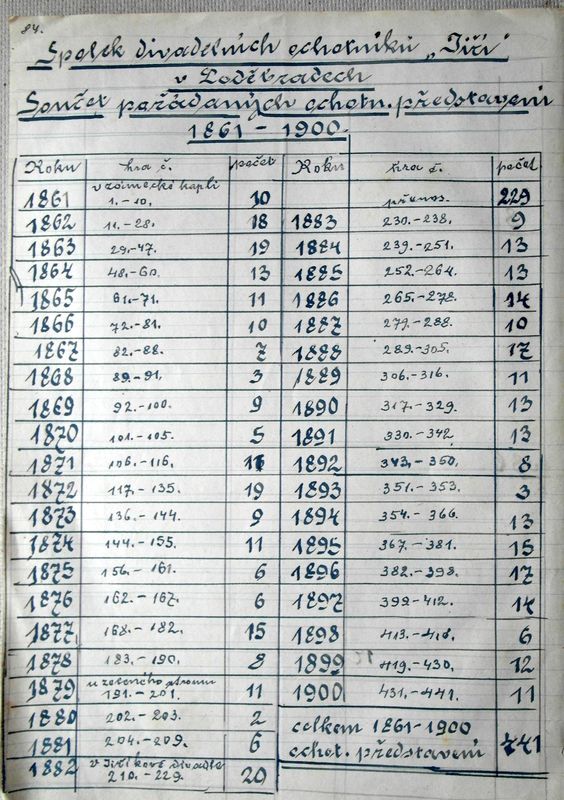 84.
Spolek divadelních ochotníků „Jiří“
v Poděbradech
Součet pořádaných ochotn. představení
1861 - 1900.
Roku hra č. počet
v zámecké kapli
1861 1. - 10. 10
1862 11. - 28. 18
1863 29. - 47. 19
1864 48. - 60. 13
1865 61. - 71. 11
1866 72. - 81. 10
1867 82. - 88. 7
1868 89. - 91. 3
1869 92. - 100. 9
1870 101. - 105. 5
1871 106. - 116. 11
1872 117. - 135. 19
1873 136. - 144. 9
1874 144. - 155. 11
1875 156. - 161. 6
1876 162. - 167. 6
1877 168. - 182. 15
1878 183. - 190. 8
u zeleného stromu
1879 191. - 201. 11
1880 202. - 203. 2
1881 204. - 209. 6
v Jiříkově divadle
1882 210. - 229. 20
Roku hra č. počet
přenos. 229
1883 230. - 238. 9
1884 239. - 251. 13
1885 252. - 264. 13
1886 265. - 278. 14
1887 279. - 288. 10
1888 289. - 305. 17
1889 306. - 316. 11
1890 317. - 329. 13
1891 330. - 342. 13
1892 343. - 350. 8
1893 351. - 353. 3
1894 354. - 366. 13
1895 367. - 381. 15
1896 382. - 398. 17
1897 399. - 412. 14
1898 413. - 418. 6
1899 419. - 430. 12
1900 431. - 441. 11
celkem 1861 - 1900
ochot. představení 441